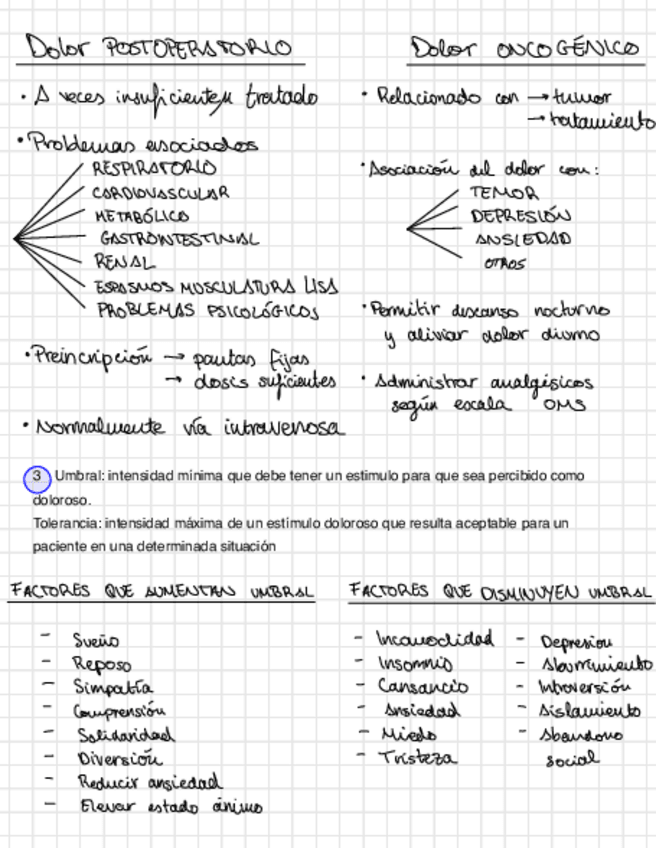 Dolor POSTOPERATORIO
· A veces insuficientem tratado
· Problemas asociados
RESPIRATORIO
CARDIOVASCULAR
METABÓLICO
GASTROINTESTINAL
RENAL
ESPASMOS MUSCULATURA LISA
PROBLEMAS PSICOLÓGICOS
· Preincripción → pautas fijas
→ dosis suficientes
· Normalmente vía intravenosa
Dolor ONCOGÉNICO
· Relacionado con → tumor
→ tratamiento
· Asociación del dolor con:
TEMOR
DEPRESIÓN
ANSIEDAD
OTROS
· Permitir descanso nocturno
y aliviar dolor diurno
· Administrar analgésicos
según escala OMS
3 Umbral: intensidad mínima que debe tener un estimulo para que sea percibido como
doloroso.
Tolerancia: intensidad máxima de un estímulo doloroso que resulta aceptable para un
paciente en una determinada situación
FACTORES QUE AUMENTAN UMBRAL
- Sueño
- Reposo
- Simpatía
- Comprensión
- Solidaridad
- Diversión
- Reducir ansiedad
- Elevar estado ánimo
FACTORES QUE DISMINUYEN UMBRAL
- Incomodidad
- Insomnio
- Cansancio
- Ansiedad
- Miedo
- Tristeza
- Depresion
- Aburrimiento
- Introversión
- Aislamiento
- Abandono
social